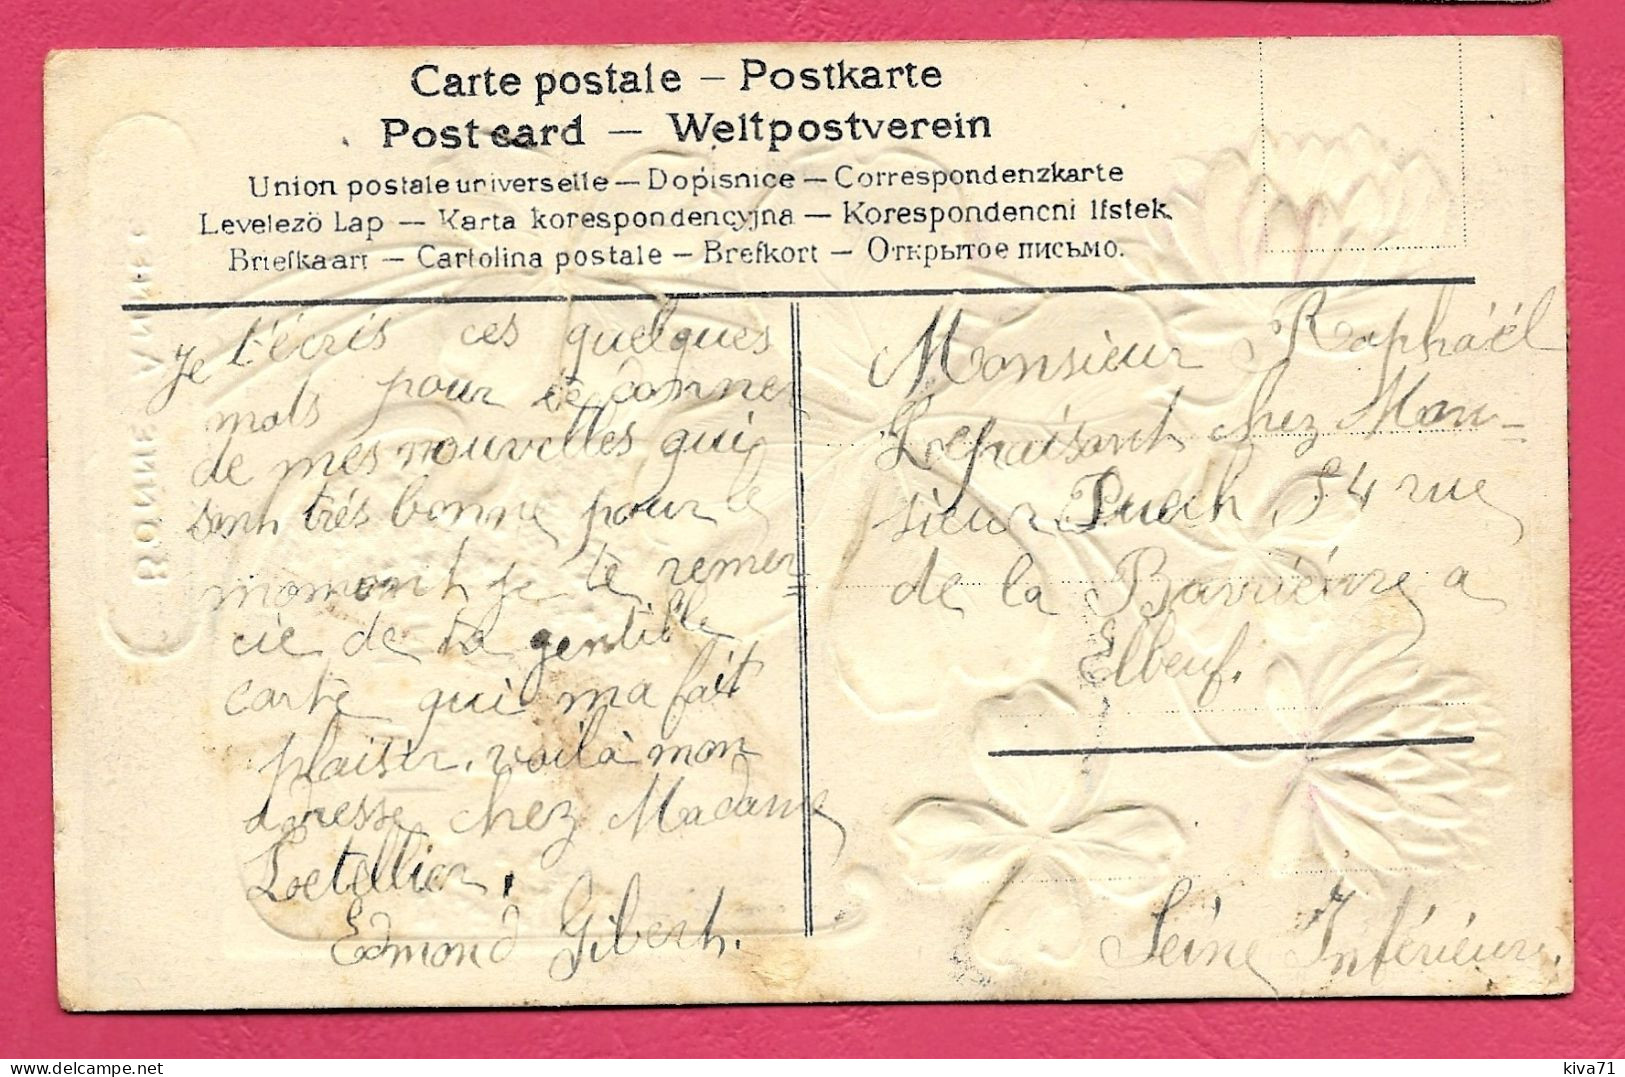 Carte postale – Postkarte
Post card — Weltpostverein
Union postale universelle — Dopisnice — Correspondenzkarte
Levelező Lap — Karta korespondencyjna — Korespondencni listek.
Briefkaart — Cartolina postale — Brefkort — Открытое письмо.
Je t'écris ces quelques
mots pour te donner
de mes nouvelles qui
sont très bonne pour le
moment je te remer=
cie de ta gentille
carte qui ma fait
plaisir. voilà mon
adresse chez Madame
Letellier.
Edmond Gibert.
Monsieur Raphaël
Lepaisant chez Mon-
sieur Puech 54 rue
de la
a
Elbeuf.
Seine Inférieure.
BONNE ANNÉE
kiva71